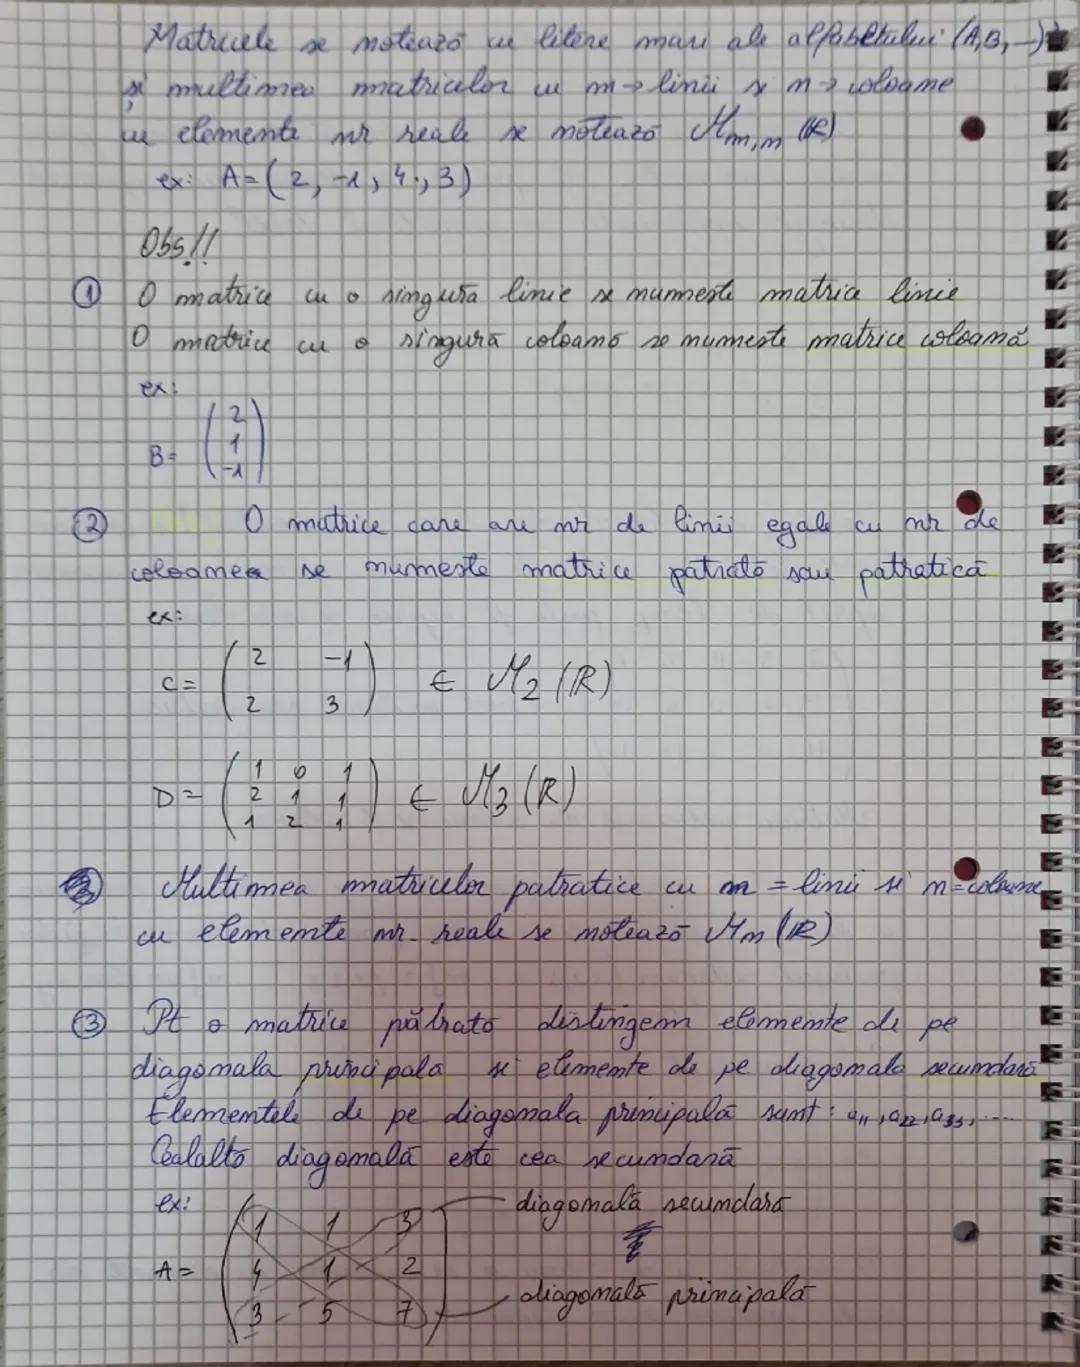 Matricele se notează cu litere mari ale alfabetului (A,B,...)
și multimea matricelor cu m→linii și n→coloane
cu elemente nr reale se notează M m,n (ℝ)
ex: A=(2, -1, 4, 3)
Obs!!
① O matrice cu o singură linie se numește matrice linie
O matrice cu o singură coloană se numește matrice coloană
ex:
B= ( 2
1
-1 )
② O matrice care are nr de linii egale cu nr de
coloane se numește matrice patrată sau patratică
ex:
C= ( 2 -1
2 3 ) ∈ M₂(ℝ)
D= ( 1 0 1
2 1 1
1 2 1 ) ∈ M₃(ℝ)
Multimea matricelor patratice cu n=linii si n=coloane
cu elemente nr. reale se notează Mn(ℝ)
③ Pt o matrice pătrată distingem elemente de pe
diagonala principala si elemente de pe diagonala secundară
Elementele de pe diagonala principală sunt: a₁₁, a₂₂, a₃₃, ....
Cealaltă diagonală este cea secundară
ex:
diagonală secundară
A= ( 1 1 3
4 1 2
3 5 7 )
diagonală principală